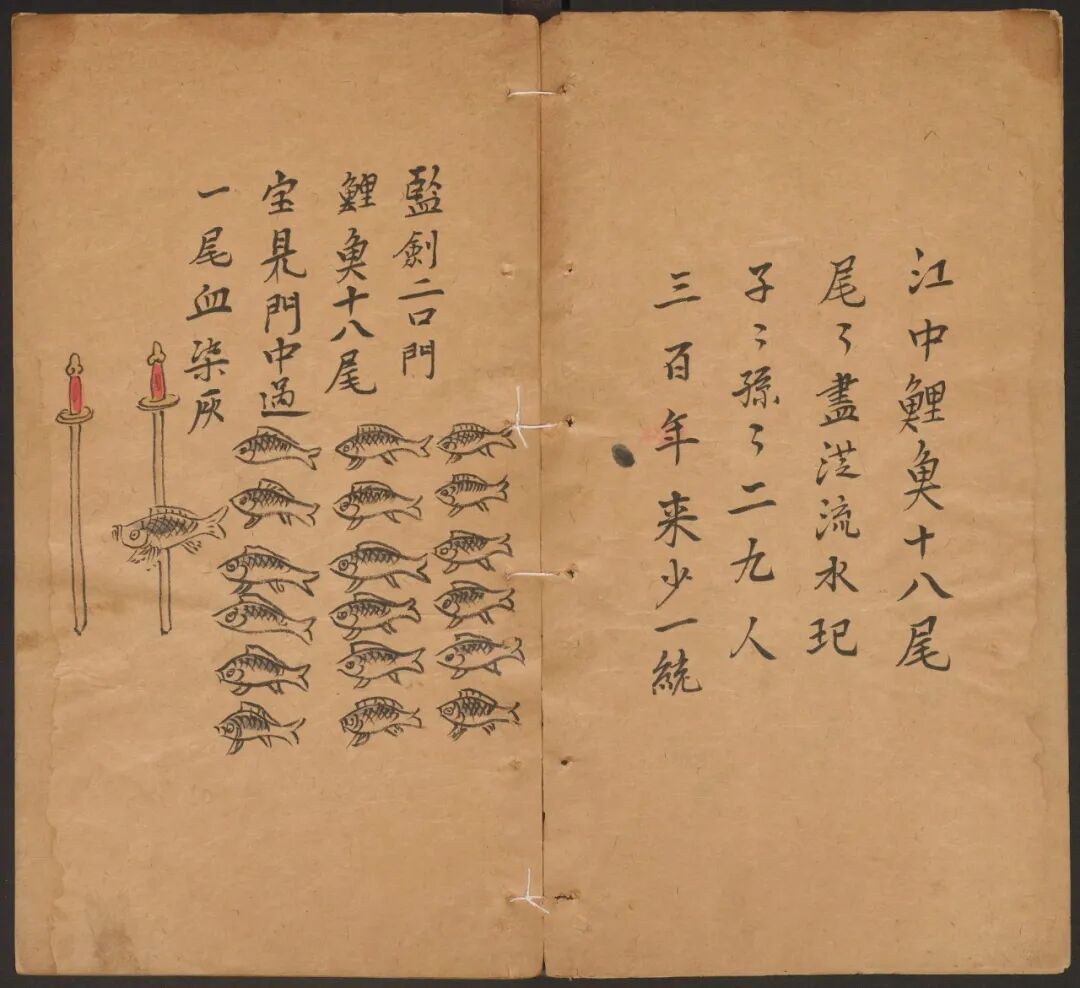 江中鯉魚十八尾
尾〻盡洪流水玘
子〻孫〻二九人
三百年来少一統
監劍二口門
鯉魚十八尾
宝見門中過
一尾血染灰